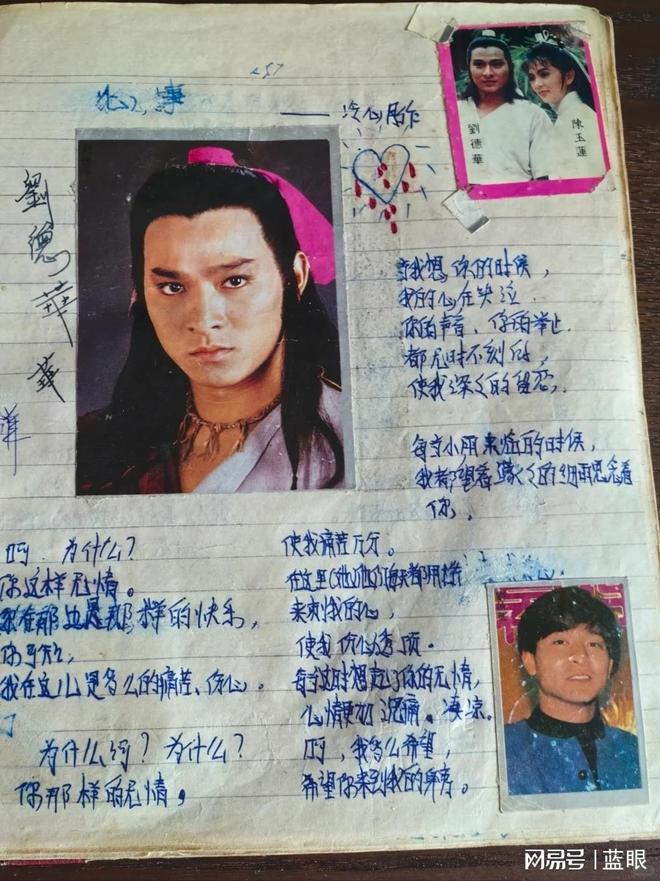 心事
——冷心居作
劉德華
陳玉蓮
劉德華
華
每当我想你的时候，
我的心在哭泣．
你的声音、你的举止．
都无时不刻的，
使我深々的留恋．
每当小雨来临的时候，
我都望着蒙々的细雨思念着
你．
啊．为什么？
你这样无情。
你在那边是那样的快乐，
你可知，
我在这儿是多么的痛苦、伤心。
为什么呀？为什么？
你那样的无情。
使我痛苦万分。
在这里
来刺我的心，
使我伤心透顶。
每当这时想起了你的无情，
心情更加沉痛。凄凉．
啊，我多么希望，
希望你来到我的身旁。
网易号|蓝眼